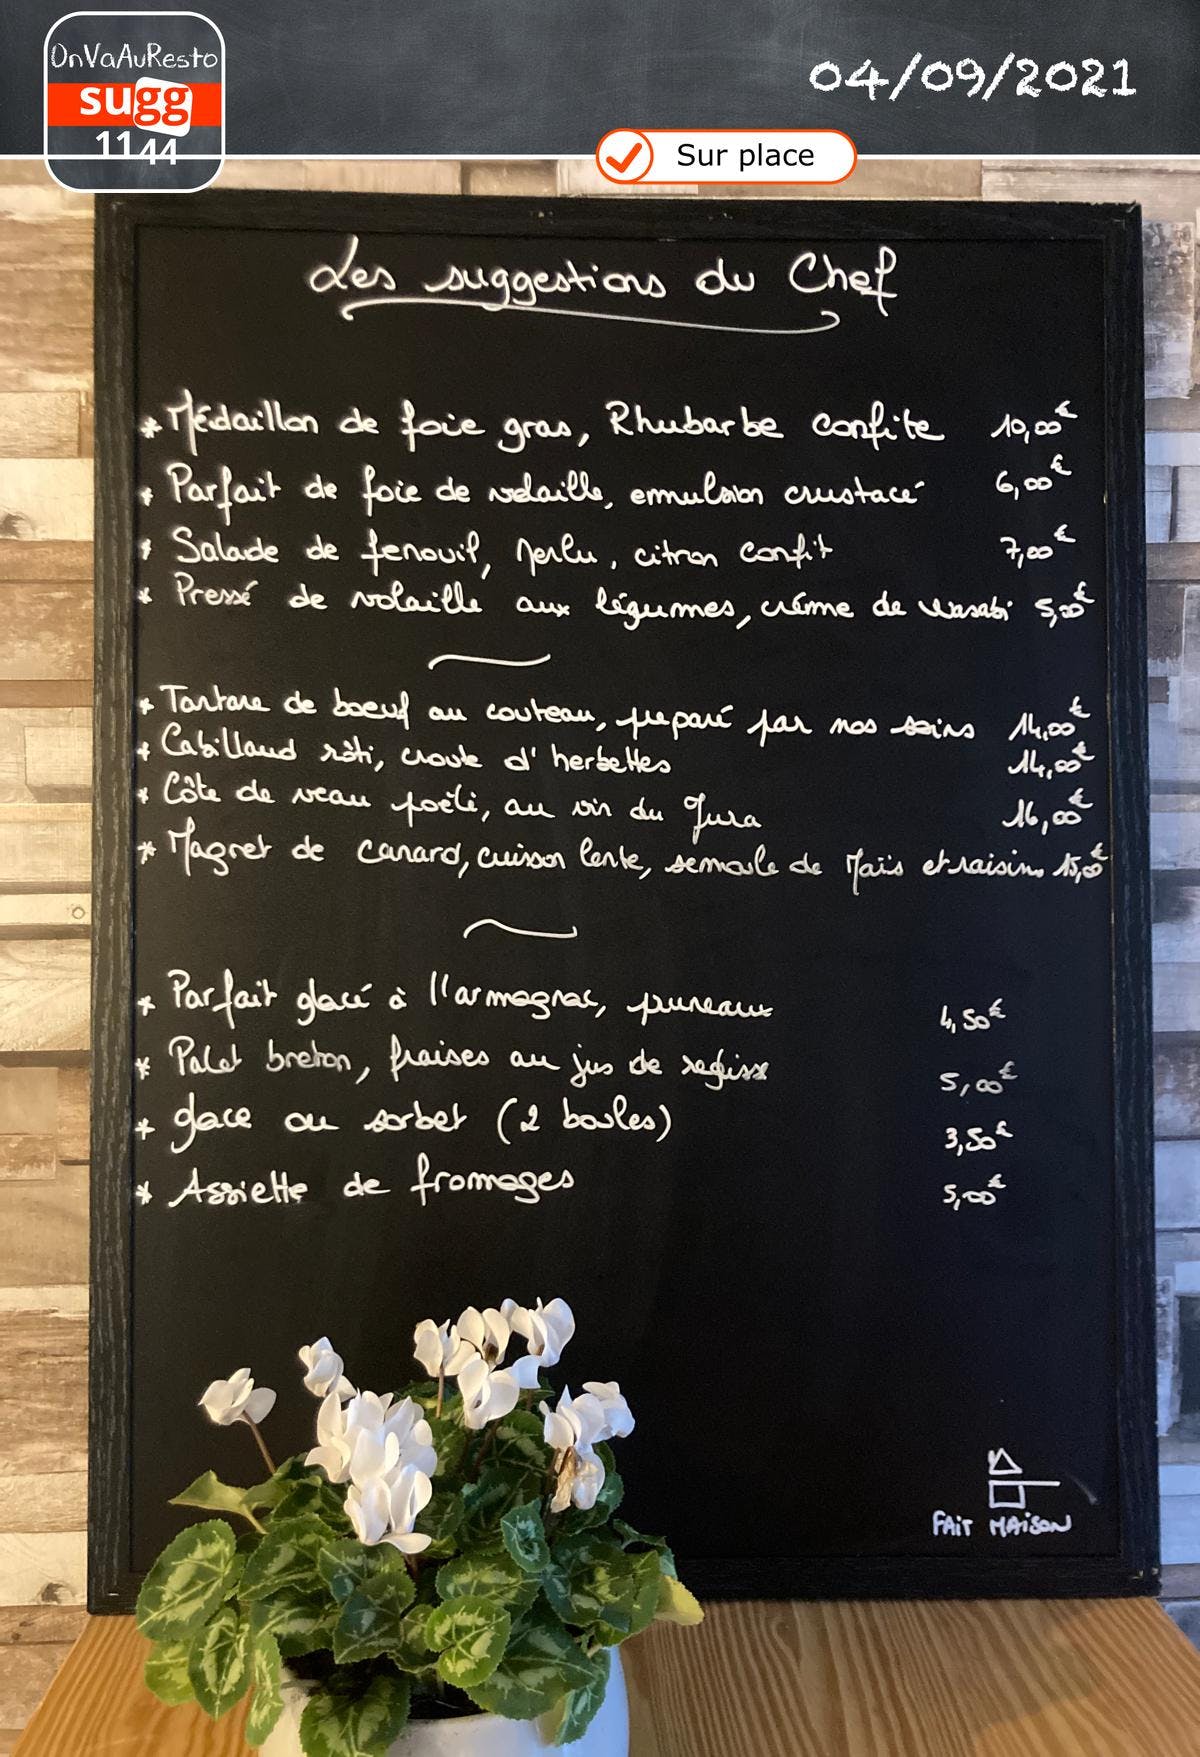 OnVaAuResto
sugg
1144
04/09/2021
Sur place
Les suggestions du Chef
* Médaillon de foie gras, Rhubarbe confite 10,00€
* Parfait de foie de volaille, emmulsion crustacé 6,00€
* Salade de fenouil, perlu, citron confit 7,00€
* Pressé de volaille aux légumes, crème de wasabi 5,00€
* Tartare de boeuf au couteau, preparé par nos soins 14,00€
* Cabillaud rôti, croute d'herbettes 14,00€
* Côte de veau poêlé, au vin du Jura 16,00€
* Magret de canard, cuisson lente, semoule de Maïs et raisins 15,00€
* Parfait glacé à l'armagnac, pruneaux 4,50€
* Palet breton, fraises au jus de 5,00€
* glace ou sorbet (2 boules) 3,50€
* Assiette de fromages 5,00€
FAIT MAISON